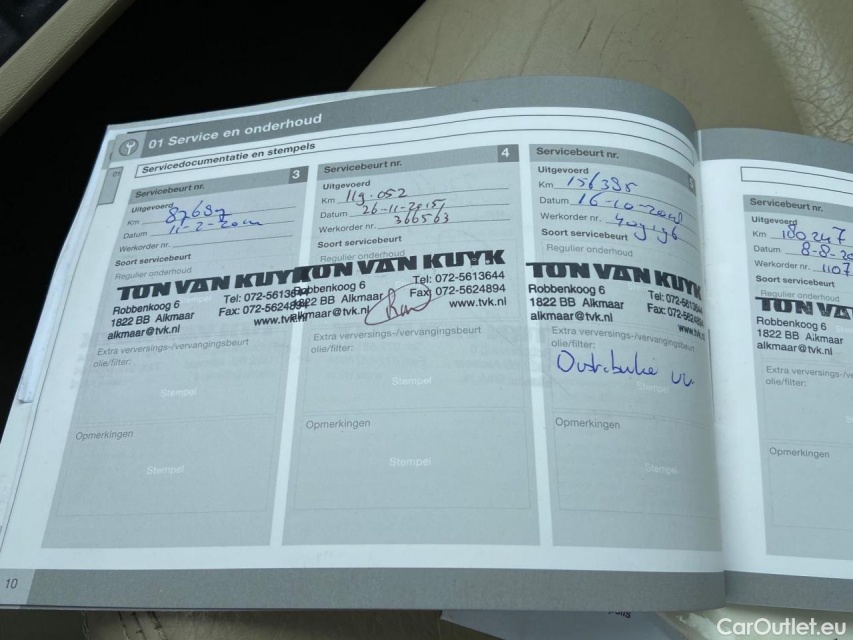 01 Service en onderhoud
Servicedocumentatie en stempels
Servicebeurt nr. 3
Uitgevoerd
Km 87697
Datum 11-2-20
Werkorder nr.
Soort servicebeurt
Regulier onderhoud
TON VAN KUYK
Robbenkoog 6 Tel: 072-5613644
1822 BB Alkmaar Fax: 072-5624894
alkmaar@tvk.nl www.tvk.nl
Extra verversings-/vervangingsbeurt
olie/filter:
Stempel
Opmerkingen
Stempel
Servicebeurt nr. 4
Uitgevoerd
Km 119.052
Datum 26-11-2015
Werkorder nr. 366563
Soort servicebeurt
Regulier onderhoud
TON VAN KUYK
Robbenkoog 6 Tel: 072-5613644
1822 BB Alkmaar Fax: 072-5624894
alkmaar@tvk.nl www.tvk.nl
Extra verversings-/vervangingsbeurt
olie/filter:
Stempel
Opmerkingen
Stempel
Servicebeurt nr.
Uitgevoerd
Km 156395
Datum 16-10-20
Werkorder nr. 409196
Soort servicebeurt
Regulier onderhoud
TON VAN KUYK
Robbenkoog 6 Tel: 072-561
1822 BB Alkmaar Fax: 072-562
alkmaar@tvk.nl www.tvk.nl
Extra verversings-/vervangingsbeurt
olie/filter:
Stempel
Opmerkingen
Stempel
Servicebeurt nr.
Uitgevoerd
Km 180247
Datum 8-8-20
Werkorder nr. 1107
Soort servicebeurt
Regulier onderhoud
TON VAN
Robbenkoog 6
1822 BB Alkmaar
alkmaar@tvk.nl
Extra verversings-/ve
olie/filter:
Opmerkingen
10
CarOutlet.eu